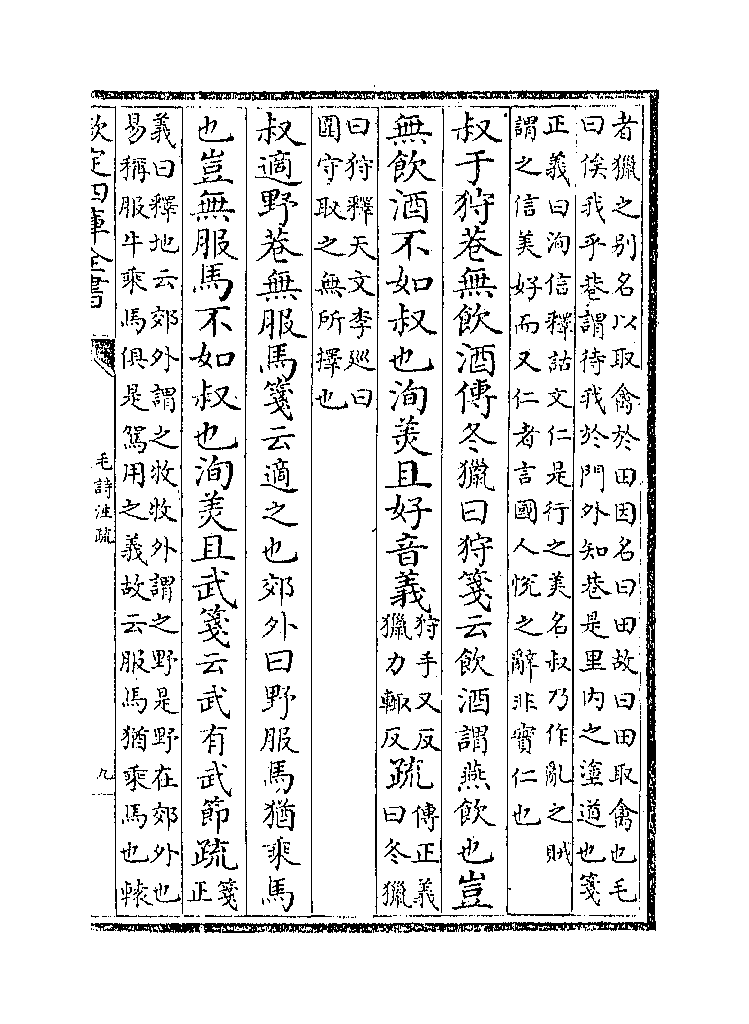 者獵之别名以取禽於田因名曰田故曰田取禽也毛
曰俟我乎巷謂待我於門外知巷是里内之塗道也箋
正義曰洵信釋詁文仁是行之美名叔乃作亂之賊
謂之信美好而又仁者言國人恱之辭非實仁也
叔于狩巷無飲酒傳冬獵曰狩箋云飲酒謂燕飲也豈
無飲酒不如叔也洵美且好音義
狩手又反
獵力輙反
疏
傳正義
曰冬獵
曰狩釋天文李廵曰
圍守取之無所擇也
叔適野巷無服馬箋云適之也郊外曰野服馬猶乘馬
也豈無服馬不如叔也洵美且武箋云武有武節疏
箋
正
義曰釋地云郊外謂之牧牧外謂之野是野在郊外也
易稱服牛乘馬俱是駕用之義故云服馬猶乘馬也
欽定四庫全書
毛詩注疏
九